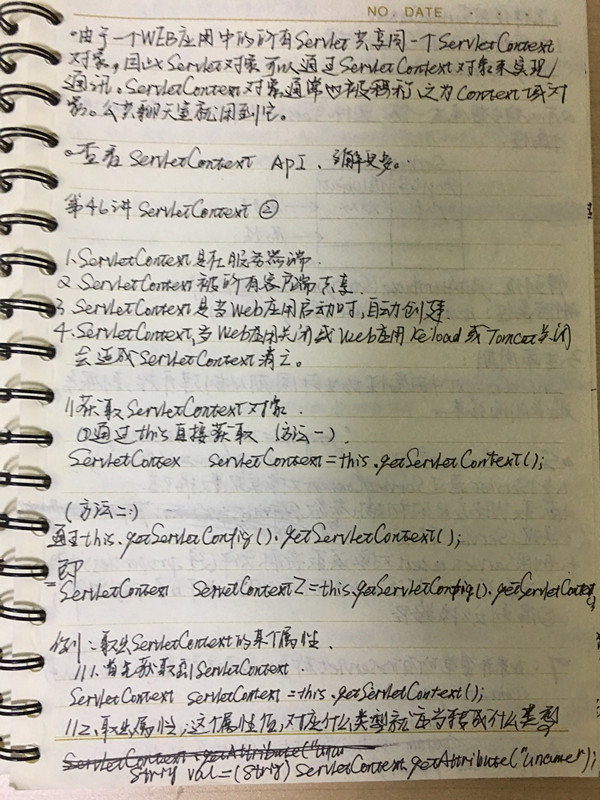 NO. DATE
•由于一个WEB应用中的所有Servlet共享同一个ServletContext
对象,因此Servlet对象可以通过ServletContext对象来实现
通讯。ServletContext对象通常也被称之为Context域对
象。公共聊天室就用到它。
•查看ServletContext API,了解更多。
第46讲 ServletContext ②
1.ServletContext是在服务器端.
2.ServletContext被所有客户端共享
3.ServletContext是当Web应用启动时,自动创建
4.ServletContext,当Web应用关闭或Web应用Reload或Tomcat关闭
会造成ServletContext消亡。
//获取ServletContext对象.
①通过this直接获取 (方法一).
ServletContex servletContext=this.getServletContext();
(方法二)
通过this.getServletConfig().getServletContext();
即
ServletContext ServletContext2=this.getServletConfig().getServletContext
例:取出ServletContext的某个属性.
//1.首先获取到ServletContext.
ServletContext servletContext=this.getServletContext();
//2.取出属性,这个属性值,对应什么类型就应当转成什么类型
ServletContext.getAttribute("una
String val=(String) ServletContext.getAttribute("uname");